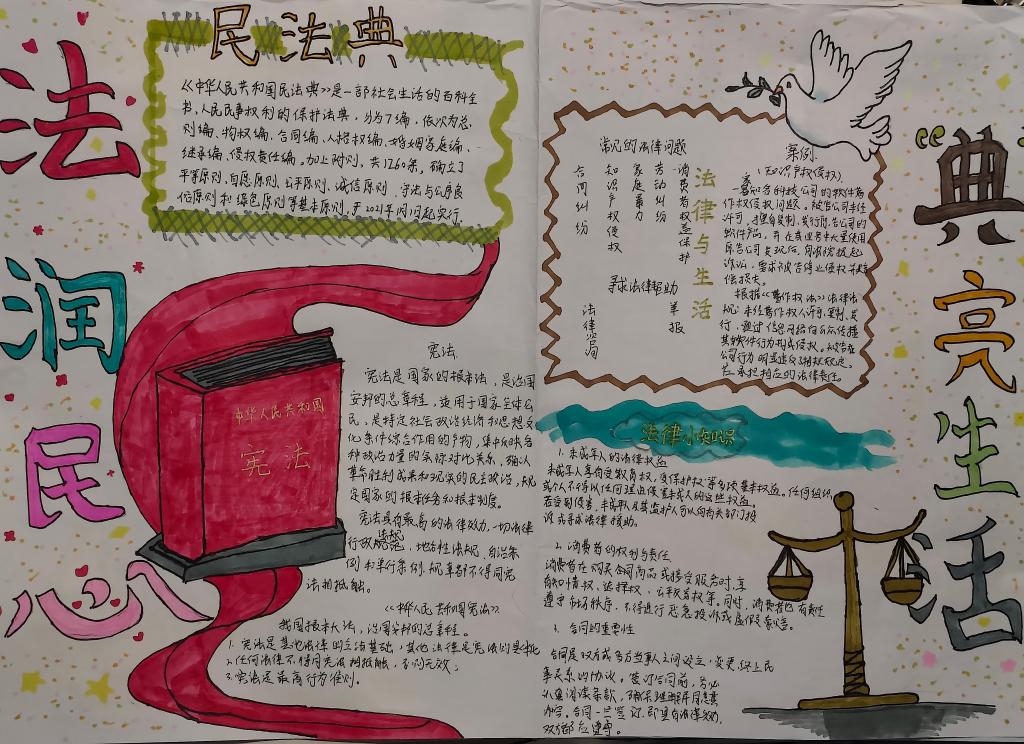 法润民心
民法典
《中华人民共和国民法典》是一部社会生活的百科全
书,人民民事权利的保护法典,分为7编,依次为总
则编、物权编、合同编、人格权编、婚姻家庭编、
继承编、侵权责任编。加上附则,共1260条,确立了
平等原则,自愿原则、公平原则、诚信原则、守法与公序良
俗原则和绿色原则等基本原则,于2021年
中华人民共和国
宪法
宪法
宪法是国家的根本法,是治国
安邦的总章程,适用于国家全体公
民,是特定社会政治经济和思想文
化条件综合作用的产物,集中反映各
种政治力量的实际对比关系,确认
革命胜利成果和现实的民主政治,规
定国家的根本任务和根本制度。
宪法具有最高的法律效力,一切法律
行政法规,地方性法规、自治条
例和单行条例、规章都不得同宪
法相抵触。
《中华人民共和国宪法》
我国根本大法,治国安邦的总章程。
1. 宪法是其他法律的立法基础,其他法律是宪法的具体
2. 任何法律不得同宪法相抵触,否则无效;
3. 宪法是最高行为准则。
常见的法律问题
合同纠纷
知识产权侵权
家庭暴力
劳动纠纷
消费者权益保护
寻求法律帮助
法律咨询
举报
法律与生活
案例
(知识产权侵权)
一家知名科技公司的软件著
作权侵权问题。被告公司未经
许可,擅自复制、发行原告公司的
软件产品,并在商业中大量使用
原告公司发现后,向法院提起
诉讼,要求被告停止侵权并赔
偿损失。
根据《著作权法》法律法
规:未经著作权人许可,复制、发
行、通过信息网络向公众传播
其软件行为构成侵权。被告
公司行为明显违反
应承担相应的法律责任。
法律小知识
1. 未成年人的法律权益
未成年人享有受教育权,受保护权等多项基本权益。任何组织
或个人不得以任何理由侵害未成年人的这些权益。
若受到侵害,未成年人及其监护人可以向有关部门投
诉或寻求法律援助。
2. 消费者的权利与责任
消费者在购买合同商品或接受服务时,享
有知情权、选择权、公平交易权等。同时,消费者也有责任
遵守市场秩序,不得进行恶意投诉或虚假宣传。
3. 合同的重要性
合同是双方或多方当事人之间设立,变更,终止民
事关系的协议。签订合同前,务必
认真阅读条款,确保理解并同意其
内容。合同一旦签订,即具有法律效力,
双方都应遵守。
“典”亮生活